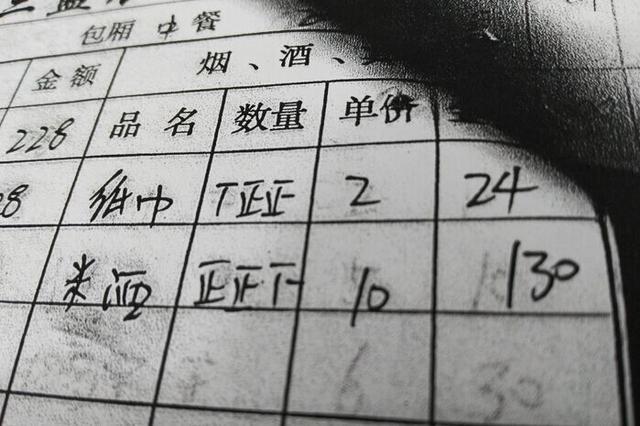 包厢 中餐
金额 烟、酒、
228 品名 数量 单价
8 纸巾 T正正 2 24
米酒 正正下 10 130
6 30